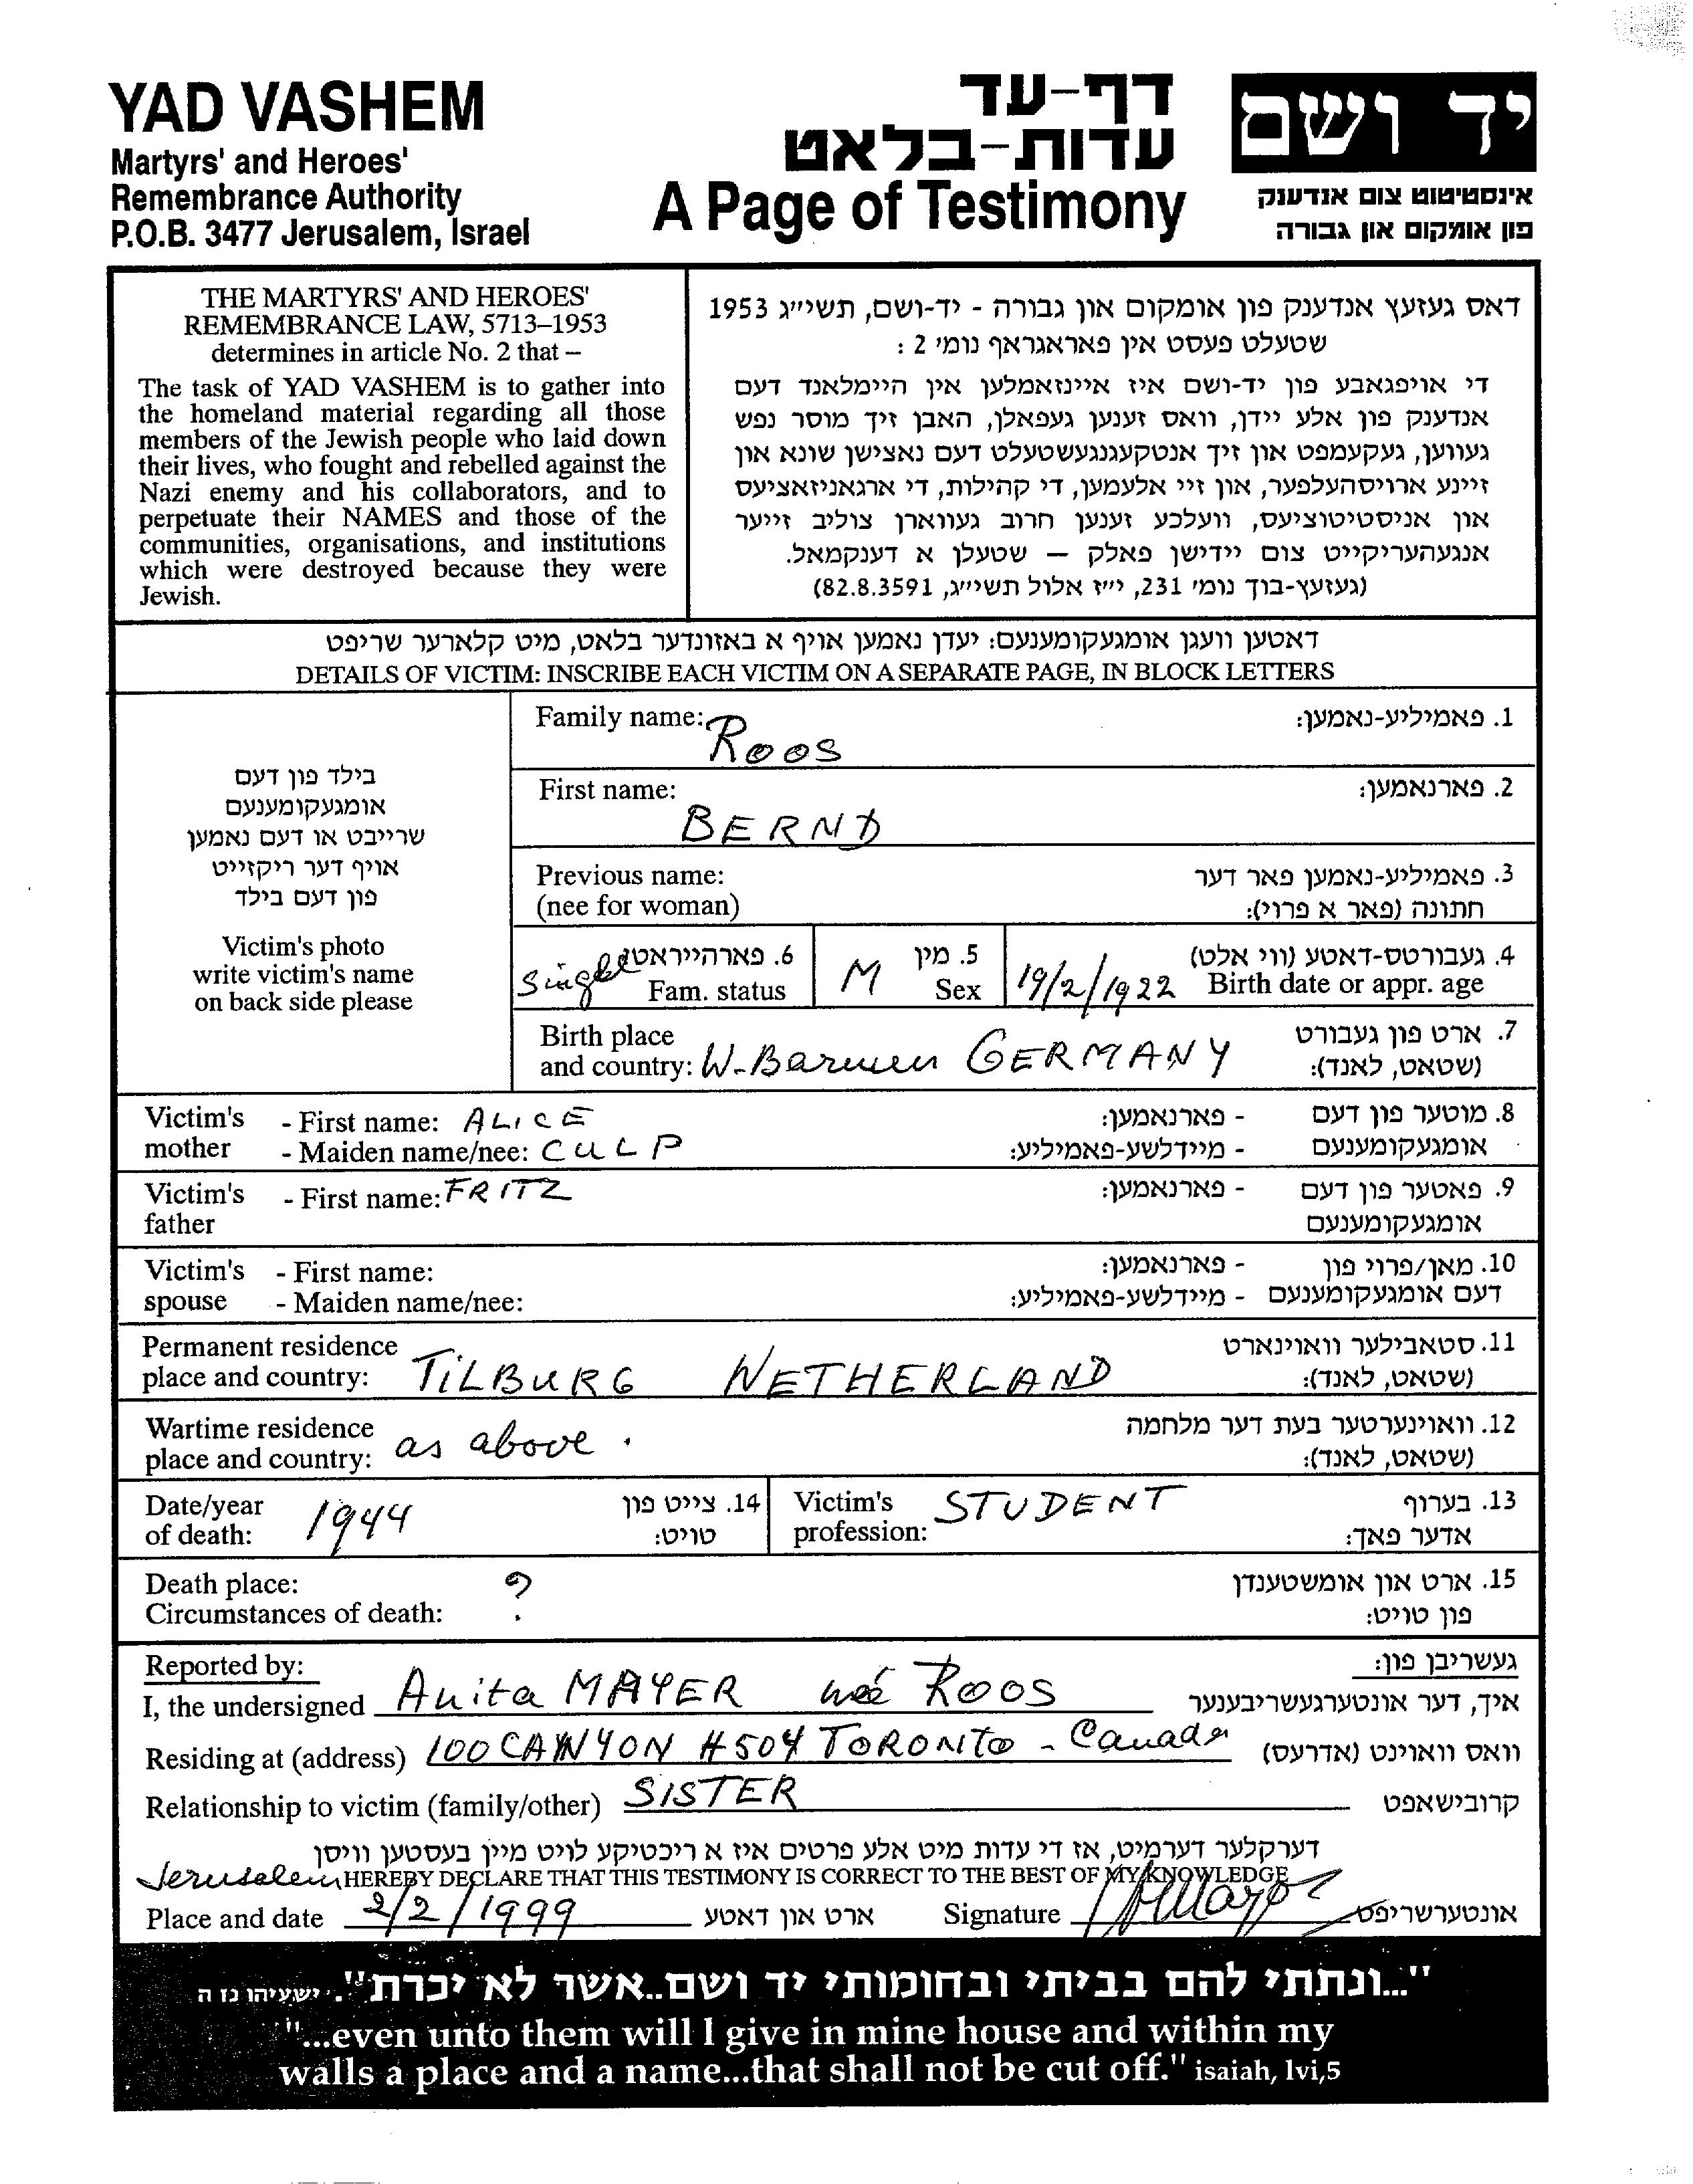 YAD VASHEM
Martyrs' and Heroes'
Remembrance Authority
P.O.B. 3477 Jerusalem, Israel
דף-עד
עדות-בלאט
A Page of Testimony
יד ושם
אינסטיטוט צום אנדענק
פון אומקום און גבורה
THE MARTYRS' AND HEROES'
REMEMBRANCE LAW, 5713–1953
determines in article No. 2 that –
The task of YAD VASHEM is to gather into
the homeland material regarding all those
members of the Jewish people who laid down
their lives, who fought and rebelled against the
Nazi enemy and his collaborators, and to
perpetuate their NAMES and those of the
communities, organisations, and institutions
which were destroyed because they were
Jewish.
דאס געזעץ אנדענק פון אומקום און גבורה - יד-ושם, תשי״ג 1953
שטעלט פעסט אין פאראגראף נומ׳ 2 :
די אויפגאבע פון יד-ושם איז איינזאמלען אין היימלאנד דעם
אנדענק פון אלע יידן, וואס זענען געפאלן, האבן זיך מוסר נפש
געווען, געקעמפט און זיך אנטקעגנגעשטעלט דעם נאצישן שונא און
זיינע ארויסהעלפער, און זיי אלעמען, די קהילות, די ארגאניזאציעס
און אניסטיטוציעס, וועלכע זענען חרוב געווארן צוליב זייער
אנגעהעריקייט צום יידישן פאלק – שטעלן א דענקמאל.
(געזעץ-בוך נומ׳ 231, י״ז אלול תשי״ג, 82.8.3591)
דאטען וועגן אומגעקומענעם: יעדן נאמען אויף א באזונדער בלאט, מיט קלארער שריפט
DETAILS OF VICTIM: INSCRIBE EACH VICTIM ON A SEPARATE PAGE, IN BLOCK LETTERS
בילד פון דעם
אומגעקומענעם
שרייבט או דעם נאמען
אויף דער ריקזייט
פון דעם בילד
Victim's photo
write victim's name
on back side please
Family name: Roos 1. פאמיליע-נאמען:
First name: BERND 2. פארנאמען:
Previous name: 3. פאמיליע-נאמען פאר דער
(nee for woman) חתונה (פאר א פרוי):
Single 6. פארהייראטעט M 5. מין 19/2/1922 4. געבורטס-דאטע (ווי אלט)
Fam. status Sex Birth date or appr. age
Birth place 7. ארט פון געבורט
and country: W-Barmen GERMANY (שטאט, לאנד):
Victim's - First name: ALICE - פארנאמען: 8. מוטער פון דעם
mother - Maiden name/nee: CULP - מיידלשע-פאמיליע: אומגעקומענעם
Victim's - First name: FRITZ - פארנאמען: 9. פאטער פון דעם
father אומגעקומענעם
Victim's - First name: - פארנאמען: 10. מאן/פרוי פון
spouse - Maiden name/nee: - מיידלשע-פאמיליע: דעם אומגעקומענעם
Permanent residence 11. סטאבילער וואוינארט
place and country: TiLBURG NETHERLAND (שטאט, לאנד):
Wartime residence 12. וואוינערטער בעת דער מלחמה
place and country: as above . (שטאט, לאנד):
Date/year 1944 14. צייט פון Victim's STUDENT 13. בערוף
of death: טויט: profession: אדער פאך:
Death place: ? 15. ארט און אומשטענדן
Circumstances of death: פון טויט:
Reported by: געשריבן פון:
I, the undersigned Anita MAYER neé Roos איך, דער אונטערגעשריבענער
Residing at (address) 100 CANYON #504 TORONTO - Canada וואס וואוינט (אדרעס)
Relationship to victim (family/other) SISTER קרובישאפט
דערקלער דערמיט, אז די עדות מיט אלע פרטים איז א ריכטיקע לויט מיין בעסטען וויסן
Jerusalem HEREBY DECLARE THAT THIS TESTIMONY IS CORRECT TO THE BEST OF MY KNOWLEDGE
Place and date 2/2/1999 ארט און דאטע Signature AMayer אונטערשריפט
"...ונתתי להם בביתי ובחומותי יד ושם..אשר לא יכרת". ישעיהו נז ה
"...even unto them will I give in mine house and within my
walls a place and a name...that shall not be cut off." isaiah, lvi,5